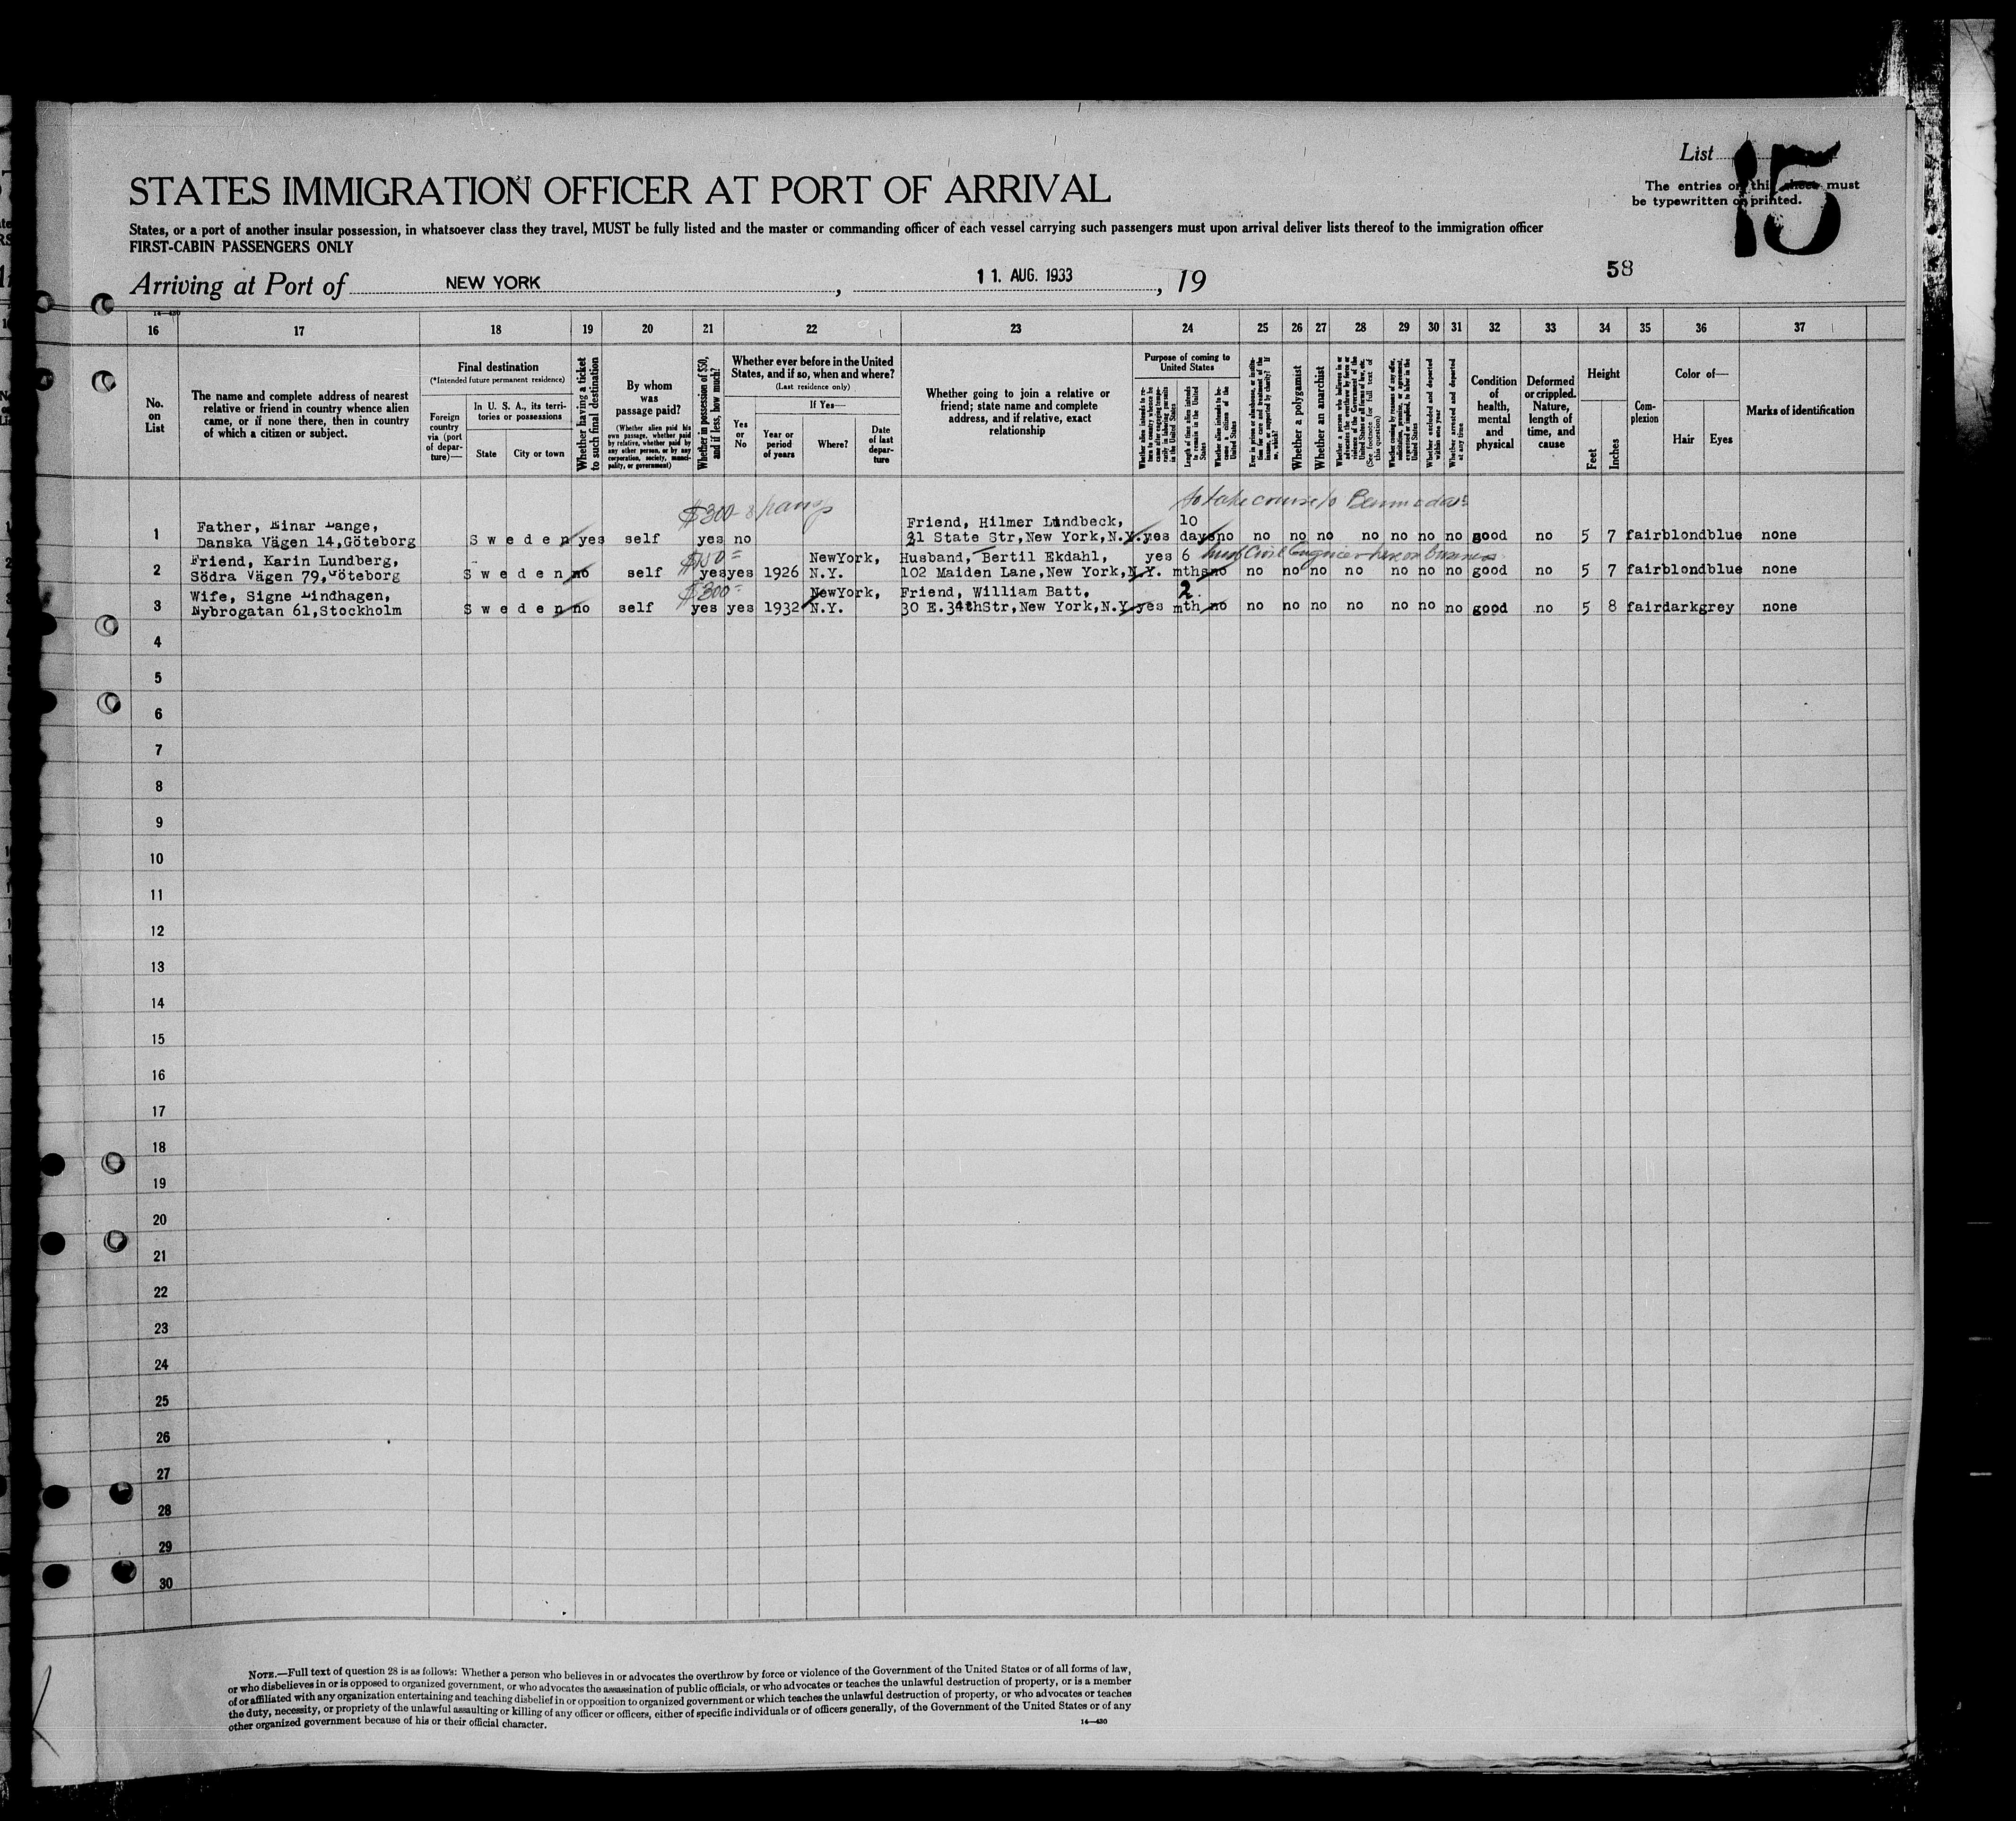 List 15
STATES IMMIGRATION OFFICER AT PORT OF ARRIVAL
The entries on this sheet must
be typewritten or printed.
States, or a port of another insular possession, in whatsoever class they travel, MUST be fully listed and the master or commanding officer of each vessel carrying such passengers must upon arrival deliver lists thereof to the immigration officer
FIRST-CABIN PASSENGERS ONLY
58
Arriving at Port of NEW YORK, 11. AUG. 1933, 19
14—430
16 17 18 19 20 21 22 23 24 25 26 27 28 29 30 31 32 33 34 35 36 37
No. on List
The name and complete address of nearest relative or friend in country whence alien came, or if none there, then in country of which a citizen or subject.
Final destination
(*Intended future permanent residence)
Foreign country via (port of departure)—
In U. S. A., its territories or possessions
State
City or town
Whether having a ticket to such final destination
By whom was passage paid?
(Whether alien paid his own passage, whether paid by relative, whether paid by any other person, or by any corporation, society, municipality, or government)
Whether in possession of $50, and if less, how much?
Whether ever before in the United States, and if so, when and where?
(Last residence only)
Yes or No
If Yes—
Year or period of years
Where?
Date of last departure
Whether going to join a relative or friend; state name and complete address, and if relative, exact relationship
Purpose of coming to United States
Whether alien intends to return to country whence he came after engaging temporarily in laboring pursuits in the United States
Length of time alien intends to remain in the United States
Whether alien intends to become a citizen of the United States
Ever in prison or almshouse, or institution for care and treatment of the insane, or supported by charity? If so, which?
Whether a polygamist
Whether an anarchist
Whether a person who believes in or advocates the overthrow by force or violence of the Government of the United States or all forms of law, etc. (See footnote for full text of this question)
Whether coming by reason of any offer, solicitation, promise, or agreement, expressed or implied, to labor in the United States
Whether excluded and deported within one year
Whether arrested and deported at any time
Condition of health, mental and physical
Deformed or crippled. Nature, length of time, and cause
Height
Feet
Inches
Complexion
Color of—
Hair
Eyes
Marks of identification
$300 to take course to Bermuda
1 Father, Einar Lange, Friend, Hilmer Lindbeck, 10
Danska Vägen 14,Göteborg Sweden yes self yes no 21 State Str,New York,N.Y. yes days no no no no no no no no good no 5 7 fair blond blue none
2 Friend, Karin Lundberg, $150 NewYork, Husband, Bertil Ekdahl, yes 6 husb Civil Engineer here on business
Södra Vägen 79,Göteborg Sweden no self yes yes 1926 N.Y. 102 Maiden Lane,New York,N.Y. mths no no no no no no no no good no 5 7 fair blond blue none
3 Wife, Signe Lindhagen, $300 NewYork, Friend, William Batt, 2
Nybrogatan 61,Stockholm Sweden no self yes yes 1932 N.Y. 30 E.34thStr,New York,N.Y. yes mth no no no no no no no no good no 5 8 fair dark grey none
4
5
6
7
8
9
10
11
12
13
14
15
16
17
18
19
20
21
22
23
24
25
26
27
28
29
30
NOTE.—Full text of question 28 is as follows: Whether a person who believes in or advocates the overthrow by force or violence of the Government of the United States or of all forms of law,
or who disbelieves in or is opposed to organized government, or who advocates the assassination of public officials, or who advocates or teaches the unlawful destruction of property, or is a member
of or affiliated with any organization entertaining and teaching disbelief in or opposition to organized government or which teaches the unlawful destruction of property, or who advocates or teaches
the duty, necessity, or propriety of the unlawful assaulting or killing of any officer or officers, either of specific individuals or of officers generally, of the Government of the United States or of any
other organized government because of his or their official character.
14—430